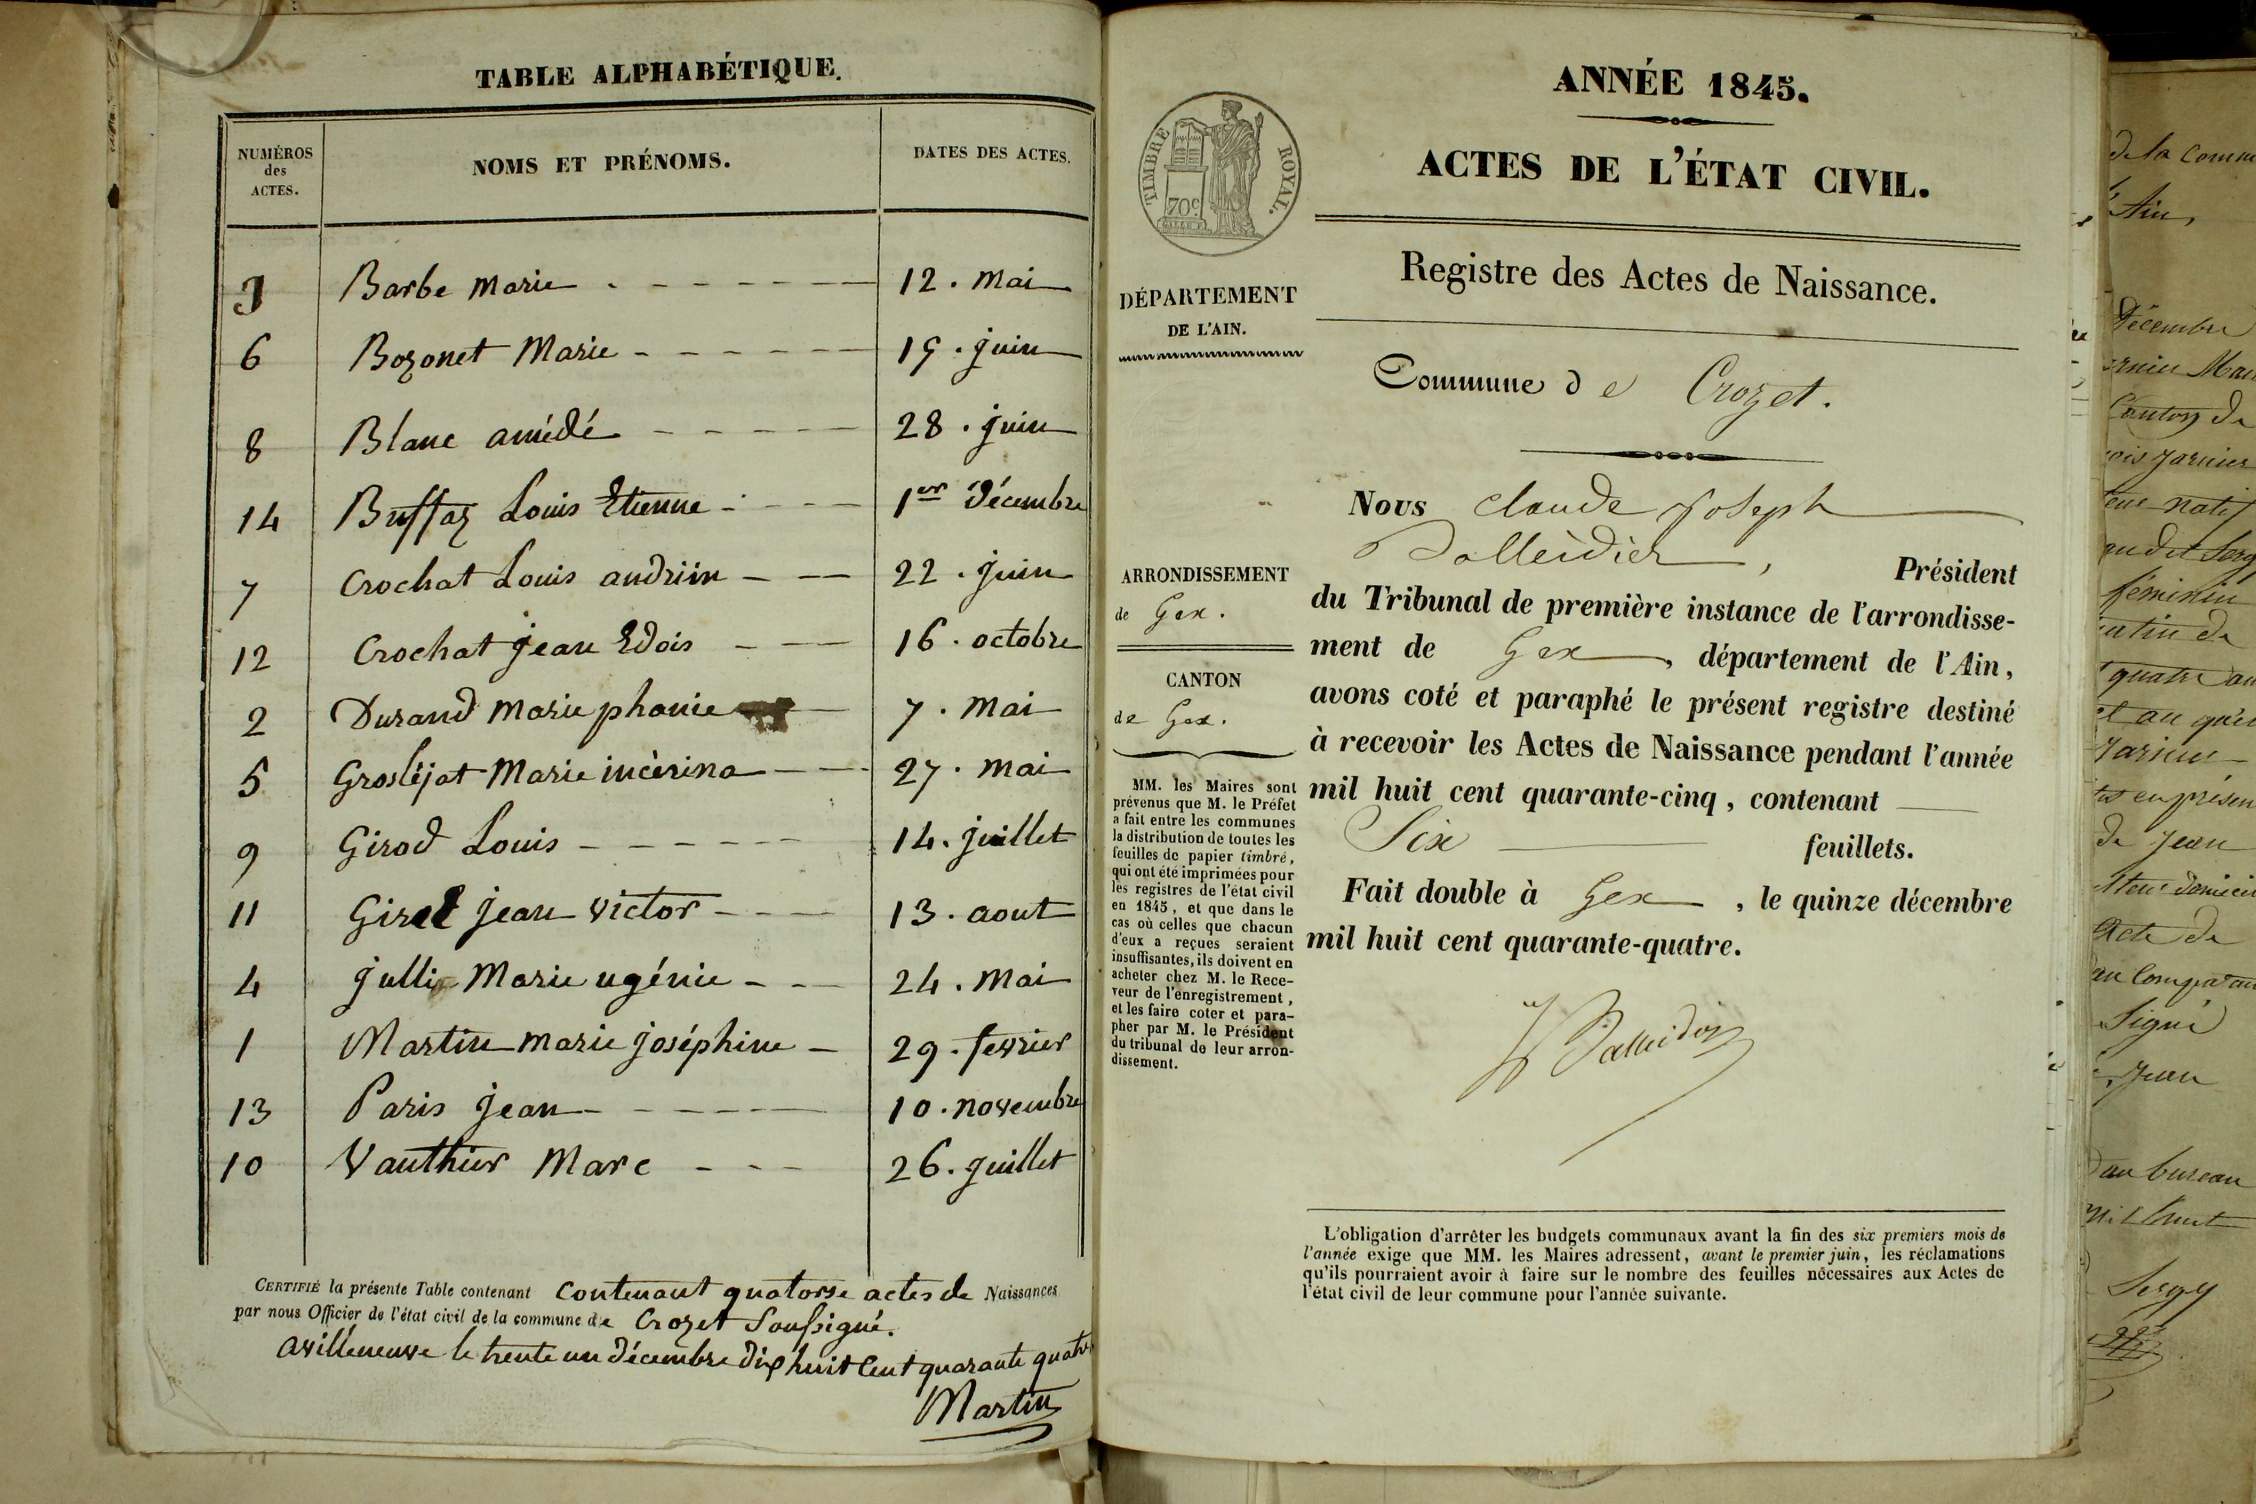 TABLE ALPHABÉTIQUE.
NUMÉROS des ACTES. NOMS ET PRÉNOMS. DATES DES ACTES.
3 Barbe Marie 12. Mai
6 Bozonet Marie 19. juin
8 Blanc amédé 28. juin
14 Buffaz Louis Etienne 1er Décembre
7 Crochat Louis andriin 22. juin
12 Crochat jean Edois 16. octobre
2 Durand Marie phanie 7. Mai
5 Grosléjat Marie incèrina 27. Mai
9 Girod Louis 14. juillet
11 Girod jean victor 13. aout
4 julli Marie ugénie 24. Mai
1 Martin marie joséphine 29. fevrier
13 Paris jean 10. novembre
10 Vauthier Marc 26. juillet
CERTIFIÉ la présente Table contenant contenant quatorse actes de Naissances
par nous Officier de l'état civil de la commune de Crozet Soussigné.
avilleneuve le trente un décembre dix huit Cent quarante quatre
Martin
TIMBRE ROYAL.
70c
DÉPARTEMENT
DE L'AIN.
ARRONDISSEMENT
de Gex.
CANTON
de Gex.
MM. les Maires sont
prévenus que M. le Préfet
a fait entre les communes
la distribution de toutes les
feuilles de papier timbré,
qui ont été imprimées pour
les registres de l'état civil
en 1845, et que dans le
cas où celles que chacun
d'eux a reçues seraient
insuffisantes, ils doivent en
acheter chez M. le Rece-
veur de l'enregistrement,
et les faire coter et para-
pher par M. le Président
du tribunal de leur arron-
dissement.
ANNÉE 1845.
ACTES DE L'ÉTAT CIVIL.
Registre des Actes de Naissance.
Commune de Crozet.
Nous Claude Joseph
Balleidier, Président
du Tribunal de première instance de l'arrondisse-
ment de Gex, département de l'Ain,
avons coté et paraphé le présent registre destiné
à recevoir les Actes de Naissance pendant l'année
mil huit cent quarante-cinq, contenant
Six feuillets.
Fait double à Gex, le quinze décembre
mil huit cent quarante-quatre.
L'obligation d'arrêter les budgets communaux avant la fin des six premiers mois de
l'année exige que MM. les Maires adressent, avant le premier juin, les réclamations
qu'ils pourraient avoir à faire sur le nombre des feuilles nécessaires aux Actes de
l'état civil de leur commune pour l'année suivante.
de la
Ain,
Décembre
Canton de
féminin
de
quatre
de Jean
Acte de
Signé
Jean
au bureau
Sergy